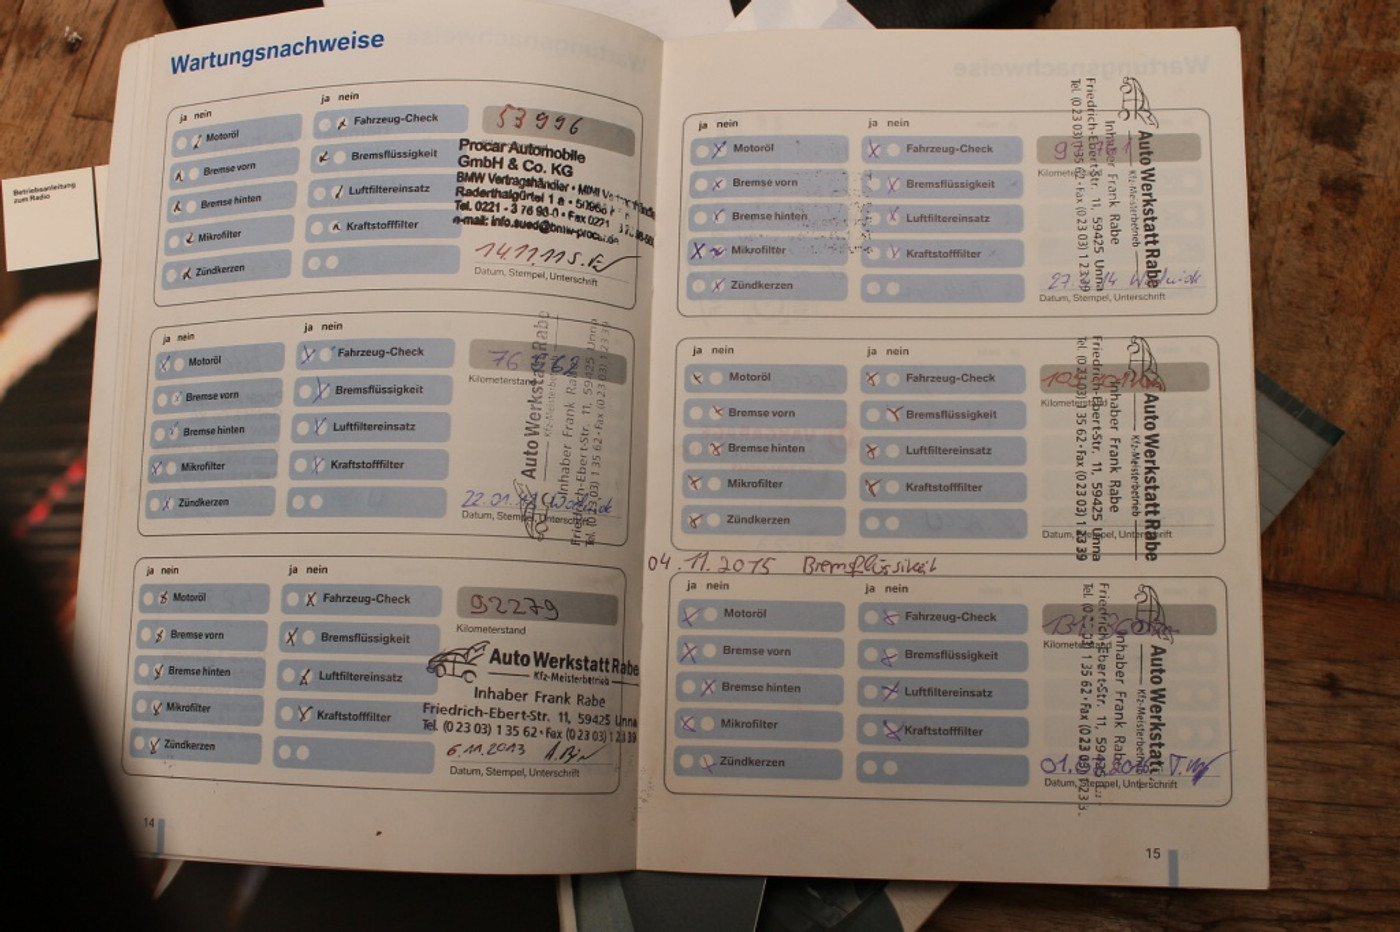 Wartungsnachweise
Betriebsanleitung
zum Radio
ja nein
ja nein
Motoröl
Fahrzeug-Check
53 996
Bremse vorn
Bremsflüssigkeit
Bremse hinten
Luftfiltereinsatz
Mikrofilter
Kraftstofffilter
Zündkerzen
Procar Automobile
GmbH & Co. KG
BMW Vertragshändler • MINI
Raderthalgürtel 1 a • 50968
Tel. 0221 - 3 76 98-0 • Fax 0221
e-mail: info.sued@bmw-procar.de
14.11.11
Datum, Stempel, Unterschrift
ja nein
ja nein
Motoröl
Fahrzeug-Check
Kilometerstand
Bremse vorn
Bremsflüssigkeit
Bremse hinten
Luftfiltereinsatz
Mikrofilter
Kraftstofffilter
Zündkerzen
22.01.
Datum, Stempel, Unterschrift
Auto Werkstatt Rabe
Kfz-Meisterbetrieb
Inhaber Frank Rabe
Friedrich-Ebert-Str. 11, 59425 Unna
Tel. (0 23 03) 1 35 62 • Fax (0 23 03) 1 23 39
ja nein
ja nein
Motoröl
Fahrzeug-Check
92279
Kilometerstand
Bremse vorn
Bremsflüssigkeit
Bremse hinten
Luftfiltereinsatz
Mikrofilter
Kraftstofffilter
Zündkerzen
Auto Werkstatt Rabe
Kfz-Meisterbetrieb
Inhaber Frank Rabe
Friedrich-Ebert-Str. 11, 59425 Unna
Tel. (0 23 03) 1 35 62 • Fax (0 23 03) 1 23 39
6.11.2013
Datum, Stempel, Unterschrift
14
ja nein
ja nein
Motoröl
Fahrzeug-Check
Bremse vorn
Bremsflüssigkeit
Bremse hinten
Luftfiltereinsatz
Mikrofilter
Kraftstofffilter
Zündkerzen
Datum, Stempel, Unterschrift
Auto Werkstatt Rabe
Kfz-Meisterbetrieb
Inhaber Frank Rabe
Friedrich-Ebert-Str. 11, 59425 Unna
Tel. (0 23 03) 1 35 62 • Fax (0 23 03) 1 23 39
ja nein
ja nein
Motoröl
Fahrzeug-Check
Bremse vorn
Bremsflüssigkeit
Bremse hinten
Luftfiltereinsatz
Mikrofilter
Kraftstofffilter
Zündkerzen
Datum, Stempel, Unterschrift
Auto Werkstatt Rabe
Kfz-Meisterbetrieb
Inhaber Frank Rabe
Friedrich-Ebert-Str. 11, 59425 Unna
Tel. (0 23 03) 1 35 62 • Fax (0 23 03) 1 23 39
04.11.2015 Bremsflüssikeit
ja nein
ja nein
Motoröl
Fahrzeug-Check
Bremse vorn
Bremsflüssigkeit
Bremse hinten
Luftfiltereinsatz
Mikrofilter
Kraftstofffilter
Zündkerzen
Datum, Stempel, Unterschrift
Auto Werkstatt
Kfz-Meisterbetrieb
Inhaber Frank Rabe
Friedrich-Ebert-Str. 11,
15